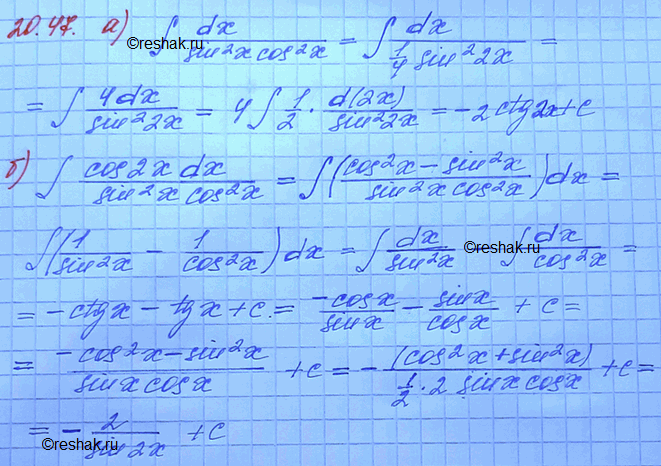 20.47. а) ∫ dx / sin²x cos²x = ∫ dx / ¼ sin²2x =
©reshak.ru
= ∫ 4dx / sin²2x = 4∫ ½ · d(2x) / sin²2x = -2ctg2x+c
б) ∫ cos2x dx / sin²x cos²x = ∫(cos²x - sin²x / sin²x cos²x)dx =
∫(1 / sin²x - 1 / cos²x) dx = ∫ dx / sin²x ©reshak.ru ∫ dx / cos²x =
= -ctgx - tgx + c = -cosx / sinx - sinx / cosx + c =
= -cos²x - sin²x / sinx cosx + c = - (cos²x + sin²x) / ½ · 2 sinx cosx + c =
= - 2 / sin 2x + c
©reshak.ru